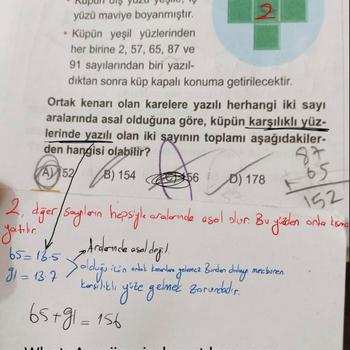 Küpün dış yüzü yeşile, iç
yüzü maviye boyanmıştır.
• Küpün yeşil yüzlerinden
her birine 2, 57, 65, 87 ve
91 sayılarından biri yazıl-
dıktan sonra küp kapalı konuma getirilecektir.
2
Ortak kenarı olan karelere yazılı herhangi iki sayı
aralarında asal olduğuna göre, küpün karşılıklı yüz-
lerinde yazılı olan iki sayının toplamı aşağıdakiler-
den hangisi olabilir?
A) 152 B) 154 C) 156 D) 178
87
+ 65
152
2, diğer sayıların hepsiyle aralarında asal olur. Bu yüzden
65 = 13.5
91 = 13.7
Aralarında asal değil.
olduğu için ortak kenarları gelemez
karşılıklı yüze gelmek zorundadır.
65 + 91 = 156